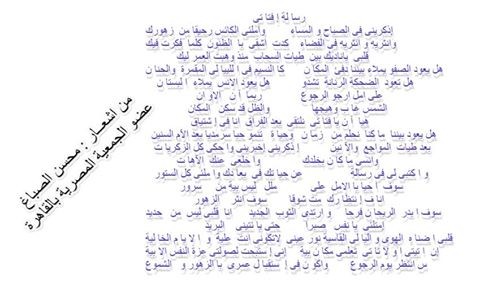 رسالة إفتاتى
إذكرينى فى الصباح و المساء وإملئى الكأس رحيقا من زهورك
وانثرية و أنثرية فى الفضاء كدت أشقى با الظنون كلما فكرت فيك
قلبى يناديك بين طيات السحاب منذ وهبت العمر ليك
هل يعود الصفو يملاء بيننا دفئ المكان كا النسيم فى الليالى المقمرة والحنان
هل تعود الضحكة الرنانة تشدو هل يعود الانس يملاء البستان
على امل ارجو الرجوع ربما آن الاوان
الشمس غاب وهيجها والظل قد سكن المكان
هيا آن يا فتاتى نلتقى بعد الفراق انا فى إشتياق
هل يعود بيننا ما كنا نحلم من زمان وحياة تنمو حبا سرمديا بعد الأم السنين
بعد طيات المواجع والأنين إذكرينى إخبرينى واحكى كل الزكريات
وانسى ما كان بخلدك واخلعى عنك الآهات
و اكتبى لى فى رسالة عن حياتك فى بعادك واملئى كل السطور
سوف أحيا با الامل على ملل ليس بية من سرور
انا ف إنتظارك ست شوقا سوف انثر الزهور
سوف ابدر الريحان فرحا وارتدى الثوب الجديد انا قلبى ليس من جديد
إمتلئى يا نفس صبرا حتى يا تتينى البريد
قلبى اضناه الهوى و اليالى القاسية نور عينى لاتكونى انت علية والايام الخالية
إن اتيتى او لا تاتى تعلمى سكان بية إنى إستبحت لصولتى عزة النفس الابية
س انتظر يوم الرجوع واكون فى إستقبال عمرى با الزهور و الشموع
من اشعار : محسن الصباغ
عضو الجمعية المصرية بالقاهرة